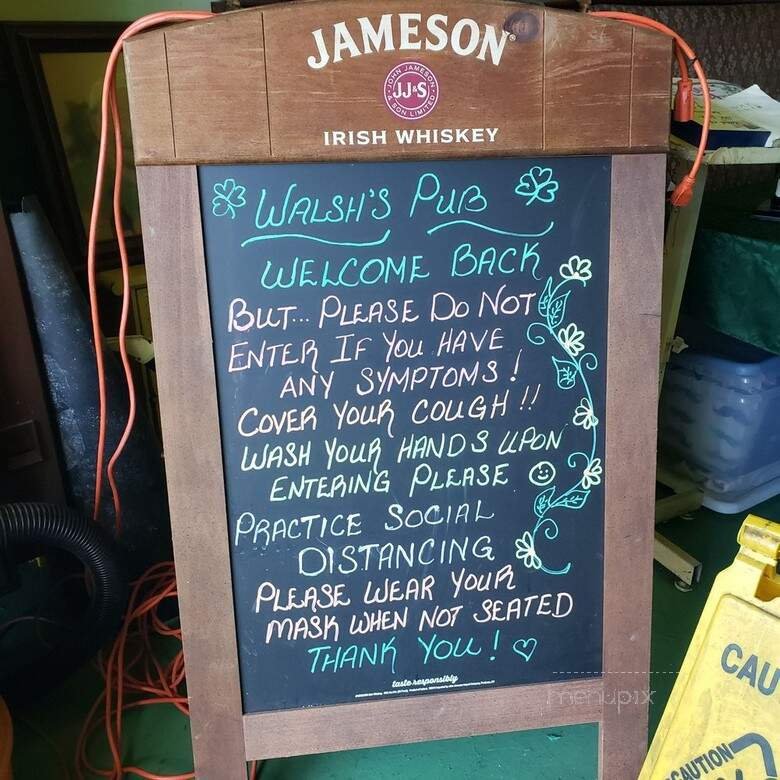 JAMESON®
JOHN JAMESON
JJ&S
& SON LIMITED
IRISH WHISKEY
WALSH'S PUB
WELCOME BACK
BUT... PLEASE DO NOT
ENTER IF YOU HAVE
ANY SYMPTOMS!
COVER YOUR COUGH!!
WASH YOUR HANDS UPON
ENTERING PLEASE
PRACTICE SOCIAL
DISTANCING
PLEASE WEAR YOUR
MASK WHEN NOT SEATED
THANK YOU!
taste responsibly
menupix
CAU
CAUTION